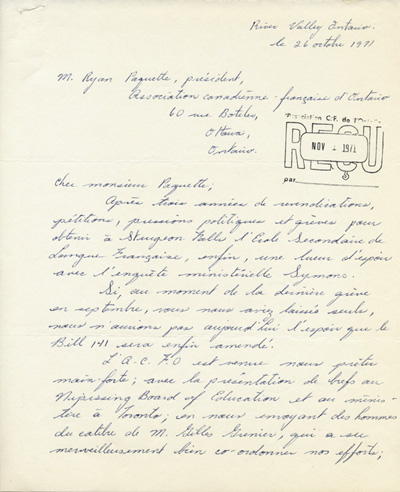 River Valley Ontario.
le 26 octobre 1971
M. Ryan Paquette, président,
Association canadienne-française d'Ontario
60 rue
Ottawa,
Ontario.
Association C.F. de l'Ontario
REÇU
NOV 1 1971
par
Cher monsieur Paquette;
Après trois années de revendications,
pétitions, pressions politiques et grèves pour
obtenir à Sturgeon Falls l'Ecole Secondaire de
Langue Française, enfin, une lueur d'espoir
avec l'enquête ministérielle Symons.
Si, au moment de la dernière grève
en septembre, vous nous aviez laissés seuls,
nous n'aurions pas aujourd'hui l'espoir que le
Bill 141 sera enfin amendé.
L'A.C.F.O est venue nous prêter
main-forte; avec la présentation de brefs au
Nipissing Board of Education et au minis-
tère à Toronto; en nous envoyant des hommes
du calibre de M. Gilles Grenier, qui a su
merveilleusement bien co-ordonner nos efforts;